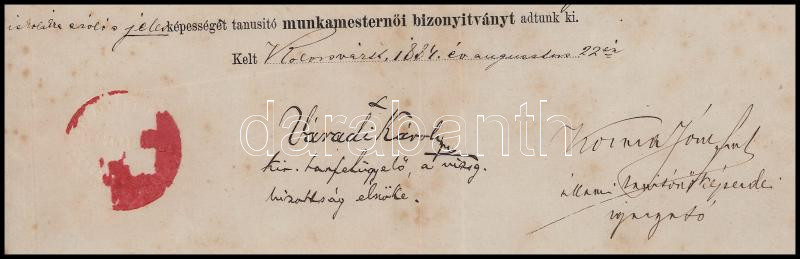 iskolákra szóló s jeles képességét tanusitó munkamesternői bizonyitványt adtunk ki.
Kelt Kolozsvártt, 1884. év augusztus 22én
Váradi Károly
kir. tanfelügyelő, a vizsg.
bizottság elnöke.
Kozma József
állami tanítónőképezdei
igazgató
darabanth